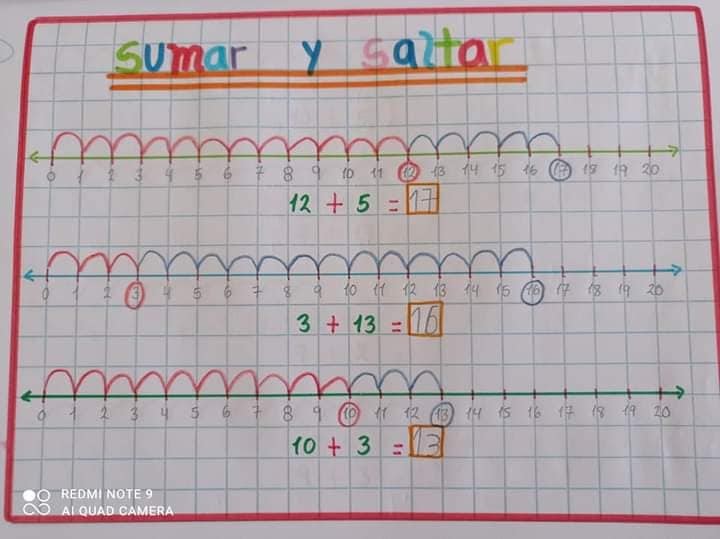 sumar y saltar
0 1 2 3 4 5 6 7 8 9 10 11 12 13 14 15 16 17 18 19 20
12 + 5 = 17
0 1 2 3 4 5 6 7 8 9 10 11 12 13 14 15 16 17 18 19 20
3 + 13 = 16
0 1 2 3 4 5 6 7 8 9 10 11 12 13 14 15 16 17 18 19 20
10 + 3 = 13
REDMI NOTE 9
AI QUAD CAMERA